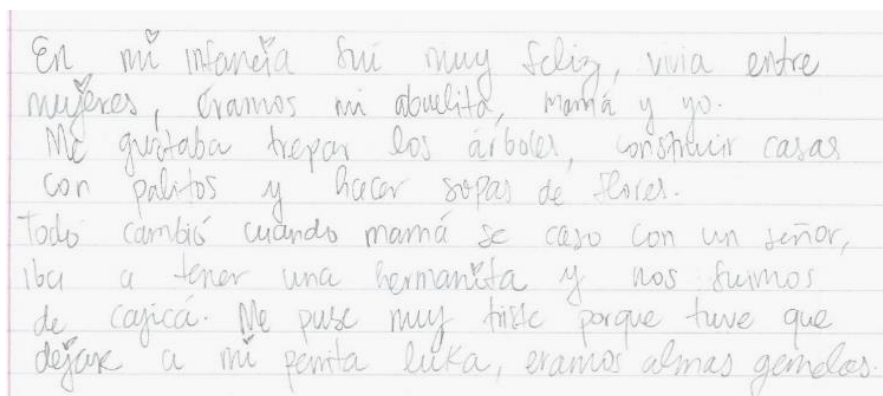 En mi infancia fui muy feliz, vivia entre
mujeres, éramos mi abuelita, mamá y yo.
Me gustaba trepar los árboles, construir casas
con palitos y hacer sopas de flores.
Todo cambió cuando mamá se caso con un señor,
iba a tener una hermanita y nos fuimos
de cajicá. Me puse muy triste porque tuve que
dejar a mi perrita luka, eramos almas gemelas.